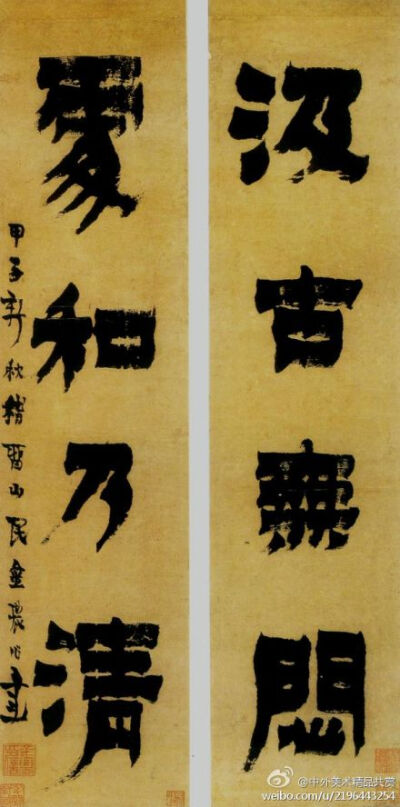 汲古無悶
處和乃清
甲子新秋稽留山民金農作書
@中外美术精品共赏
weibo.com/u/2196443254